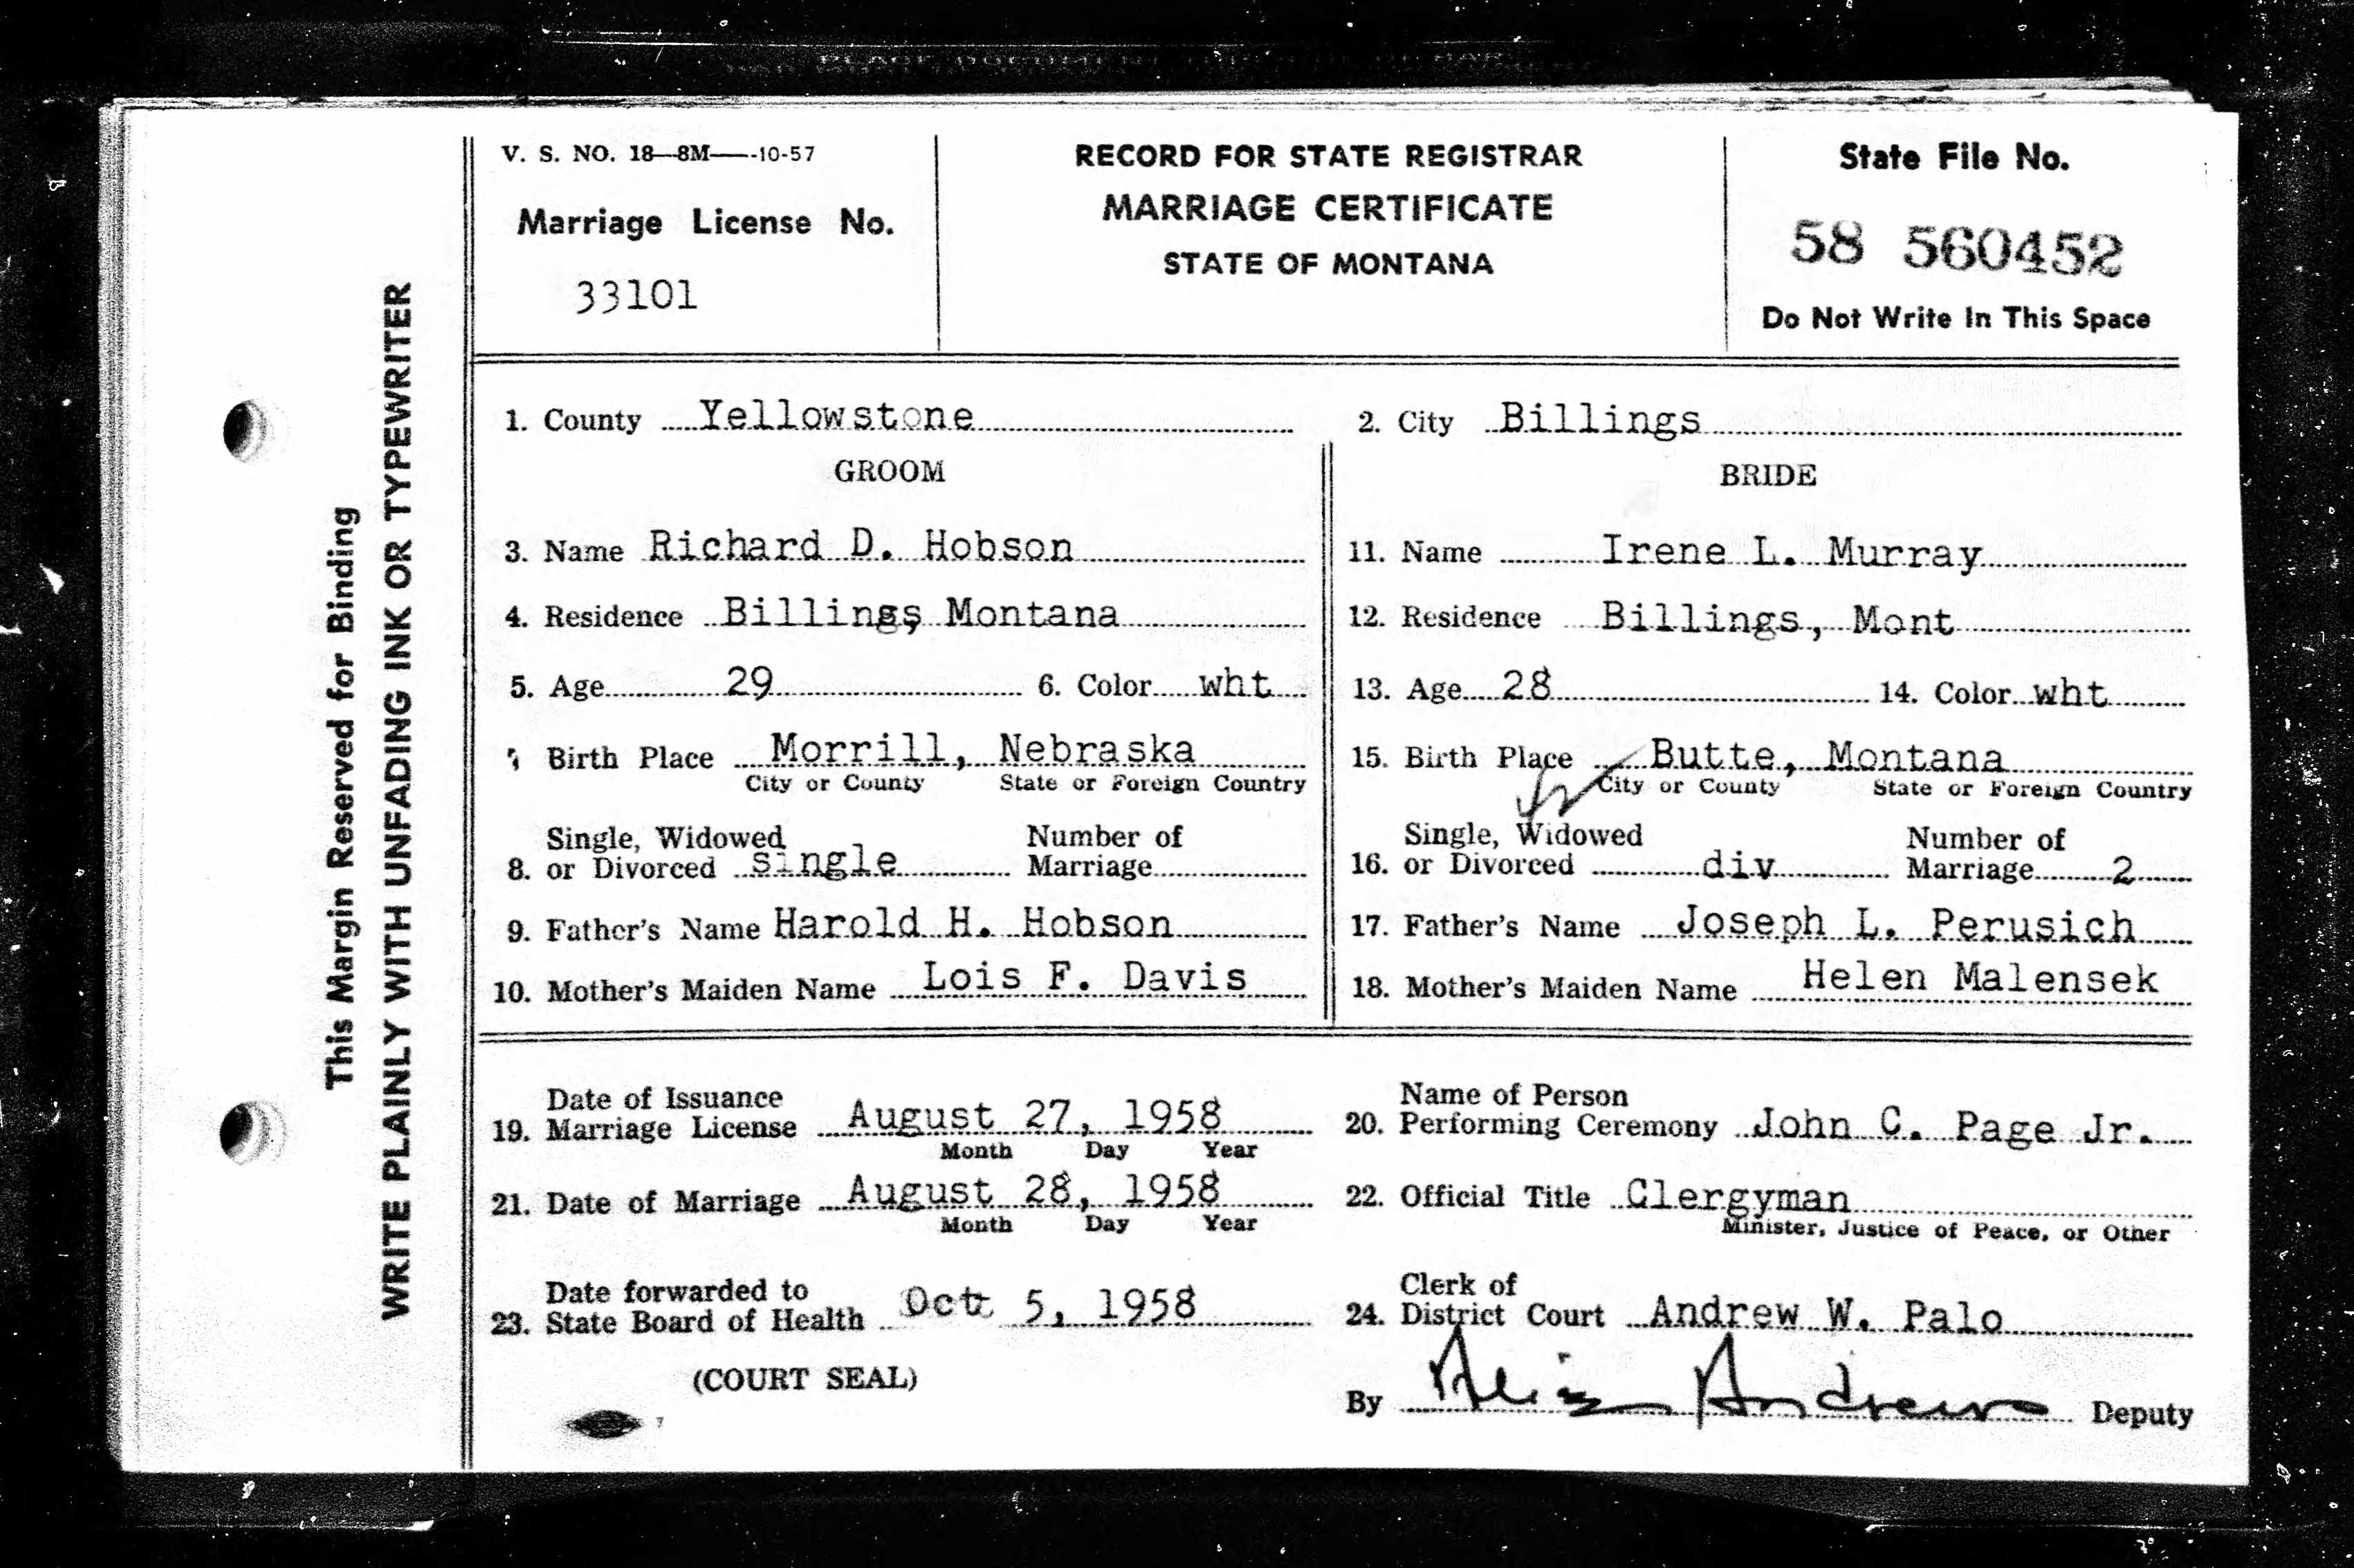 V. S. NO. 18—8M——10-57
Marriage License No.
33101
RECORD FOR STATE REGISTRAR
MARRIAGE CERTIFICATE
STATE OF MONTANA
State File No.
58 560452
Do Not Write In This Space
This Margin Reserved for Binding
WRITE PLAINLY WITH UNFADING INK OR TYPEWRITER
1. County Yellowstone
2. City Billings
GROOM
3. Name Richard D. Hobson
4. Residence Billings, Montana
5. Age 29 6. Color wht
Birth Place Morrill, Nebraska
City or County State or Foreign Country
Single, Widowed Number of
8. or Divorced single Marriage
9. Father's Name Harold H. Hobson
10. Mother's Maiden Name Lois F. Davis
BRIDE
11. Name Irene L. Murray
12. Residence Billings, Mont
13. Age 28 14. Color wht
15. Birth Place Butte, Montana
City or County State or Foreign Country
Single, Widowed Number of
16. or Divorced div Marriage 2
17. Father's Name Joseph L. Perusich
18. Mother's Maiden Name Helen Malensek
Date of Issuance
19. Marriage License August 27, 1958
Month Day Year
Name of Person
20. Performing Ceremony John C. Page Jr.
21. Date of Marriage August 28, 1958
Month Day Year
22. Official Title Clergyman
Minister, Justice of Peace, or Other
Date forwarded to
23. State Board of Health Oct 5, 1958
Clerk of
24. District Court Andrew W. Palo
(COURT SEAL)
By Andrews Deputy